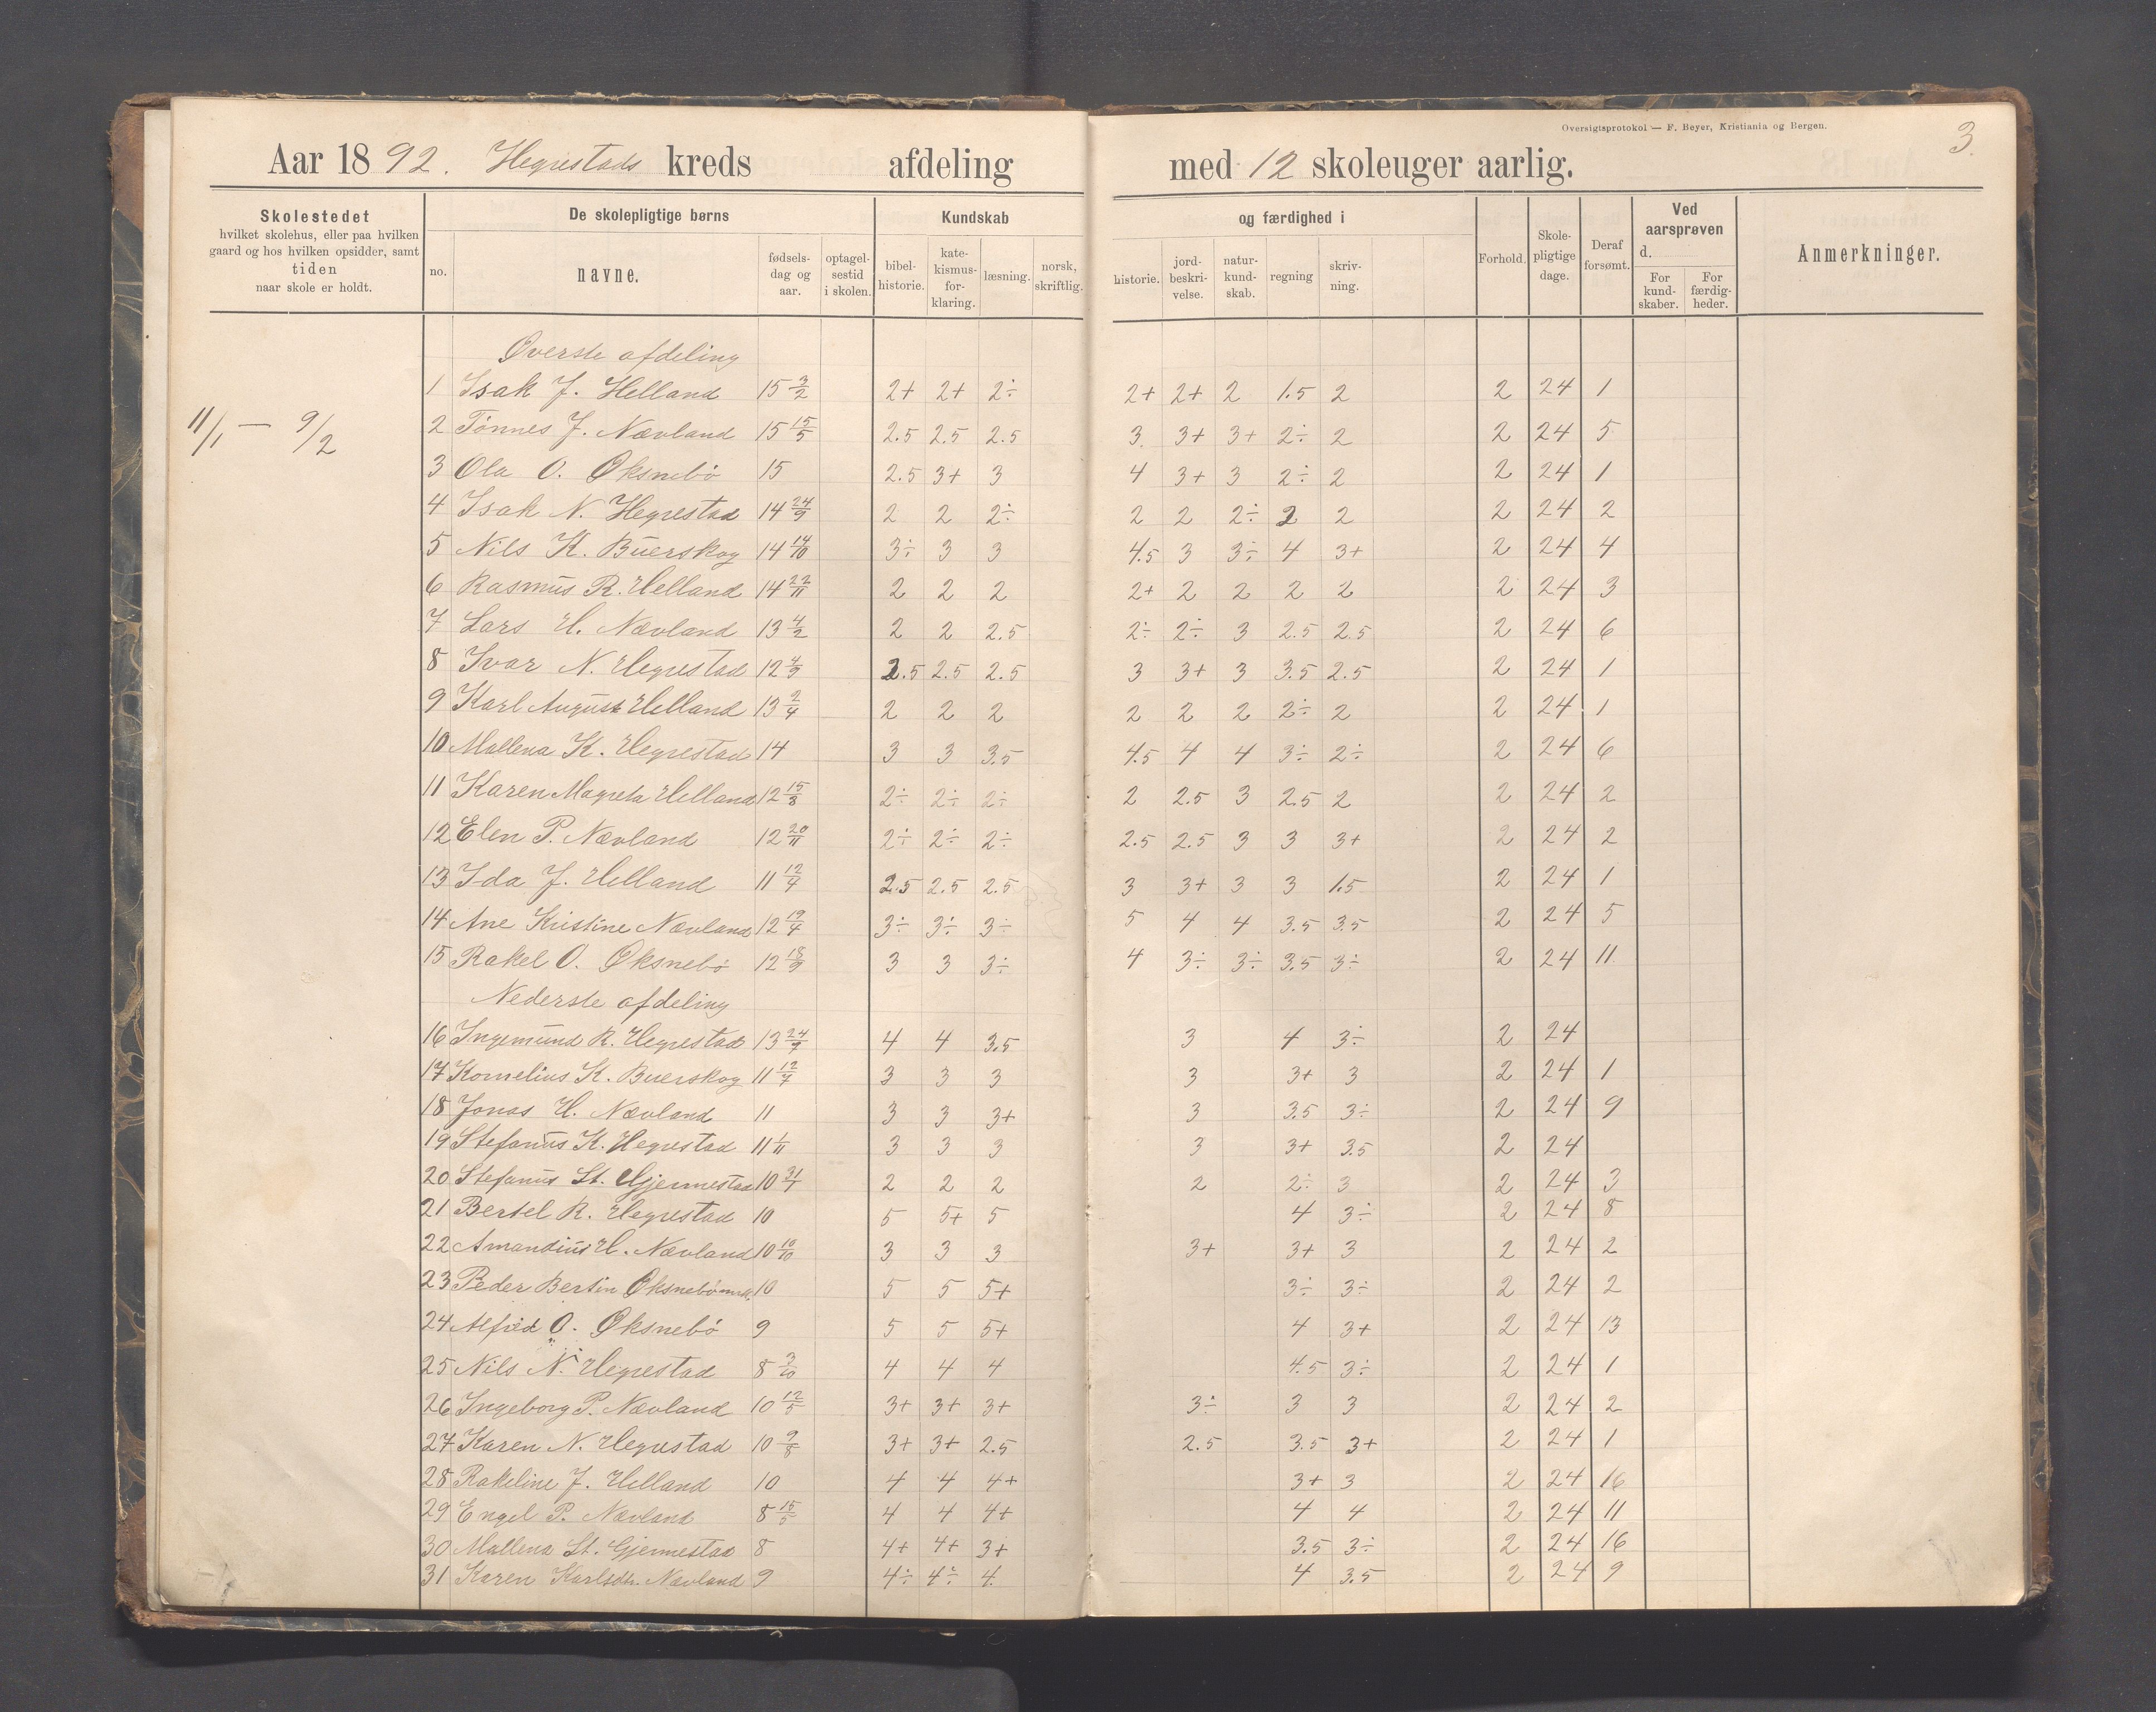 Oversigtsprotokol — F. Beyer, Kristiania og Bergen.
3.
Aar 1892. Hegrestads kreds afdeling med 12 skoleuger aarlig.
Skolestedet
hvilket skolehus, eller paa hvilken
gaard og hos hvilken opsidder, samt
tiden
naar skole er holdt.
De skolepligtige børns
no.
navne.
fødsels-
dag og
aar.
optagel-
sestid
i skolen.
Kundskab
og færdighed i
bibel-
historie.
kate-
kismus-
for-
klaring.
læsning.
norsk,
skriftlig.
historie.
jord-
beskri-
velse.
natur-
kund-
skab.
regning
skriv-
ning.
Forhold.
Skole-
pligtige
dage.
Deraf
forsømt.
Ved
aarsprøven
d.
For
kund-
skaber.
For
færdig-
heder.
Anmerkninger.
Øverste afdeling
11/1 — 9/2
1 Isak J. Helland 15 3/2 2+ 2+ 2÷ 2+ 2+ 2 1.5 2 2 24 1
2 Tønnes J. Nævland 15 15/5 2.5 2.5 2.5 3 3+ 3+ 2÷ 2 2 24 5
3 Ola O. Øksnebø 15 2.5 3+ 3 4 3+ 3 2÷ 2 2 24 1
4 Isak N. Hegrestad 14 24/9 2 2 2÷ 2 2 2÷ 2 2 2 24 2
5 Nils K. Buerskog 14 14/10 3÷ 3 3 4.5 3 3÷ 4 3+ 2 24 4
6 Rasmus R. Helland 14 22/11 2 2 2 2+ 2 2 2 2 2 24 3
7 Lars H. Nævland 13 4/2 2 2 2.5 2÷ 2÷ 3 2.5 2.5 2 24 6
8 Ivar N. Hegrestad 12 4/9 2.5 2.5 2.5 3 3+ 3 3.5 2.5 2 24 1
9 Karl August Helland 13 2/4 2 2 2 2 2 2 2÷ 2 2 24 1
10 Mallena K. Hegrestad 14 3 3 3.5 4.5 4 4 3÷ 2÷ 2 24 6
11 Karen Magreta Helland 12 15/8 2÷ 2÷ 2÷ 2 2.5 3 2.5 2 2 24 2
12 Elen P. Nævland 12 20/11 2÷ 2÷ 2÷ 2.5 2.5 3 3 3+ 2 24 2
13 Ida J. Helland 11 12/7 2.5 2.5 2.5 3 3+ 3 3 1.5 2 24 1
14 Ane Kristine Nævland 12 19/4 3÷ 3÷ 3÷ 5 4 4 3.5 3.5 2 24 5
15 Rakel O. Øksnebø 12 18/9 3 3 3÷ 4 3÷ 3÷ 3.5 3÷ 2 24 11
Nederste afdeling
16 Ingemund R. Hegrestad 13 24/7 4 4 3.5 3 4 3÷ 2 24
17 Kornelius K. Buerskog 11 12/7 3 3 3 3 3+ 3 2 24 1
18 Jonas H. Nævland 11 3 3 3+ 3 3.5 3÷ 2 24 9
19 Stefanus K. Hegrestad 11 1/11 3 3 3 3 3+ 3.5 2 24
20 Stefanus St. Gjermestad 10 31/1 2 2 2 2 2÷ 3 2 24 3
21 Bertel R. Hegrestad 10 5 5+ 5 4 3÷ 2 24 8
22 Amandius H. Nævland 10 10/10 3 3 3 3+ 3+ 3 2 24 2
23 Peder Bertin Øksnebø 10 5 5 5+ 3÷ 3÷ 2 24 2
24 Alfred O. Øksnebø 9 5 5 5+ 4 3+ 2 24 13
25 Nils N. Hegrestad 8 3/10 4 4 4 4.5 3÷ 2 24 1
26 Ingeborg P. Nævland 10 12/5 3+ 3+ 3+ 3÷ 3 3 2 24 2
27 Karen N. Hegrestad 10 9/8 3+ 3+ 2.5 2.5 3.5 3+ 2 24 1
28 Rakeline J. Helland 10 4 4 4+ 3+ 3 2 24 16
29 Engel P. Nævland 8 15/5 4 4 4+ 4 4 2 24 11
30 Mallena St. Gjermestad 8 4+ 4+ 3+ 3.5 3÷ 2 24 16
31 Karen Karlsdtr. Nævland 9 4÷ 4÷ 4. 4 3.5 2 24 9